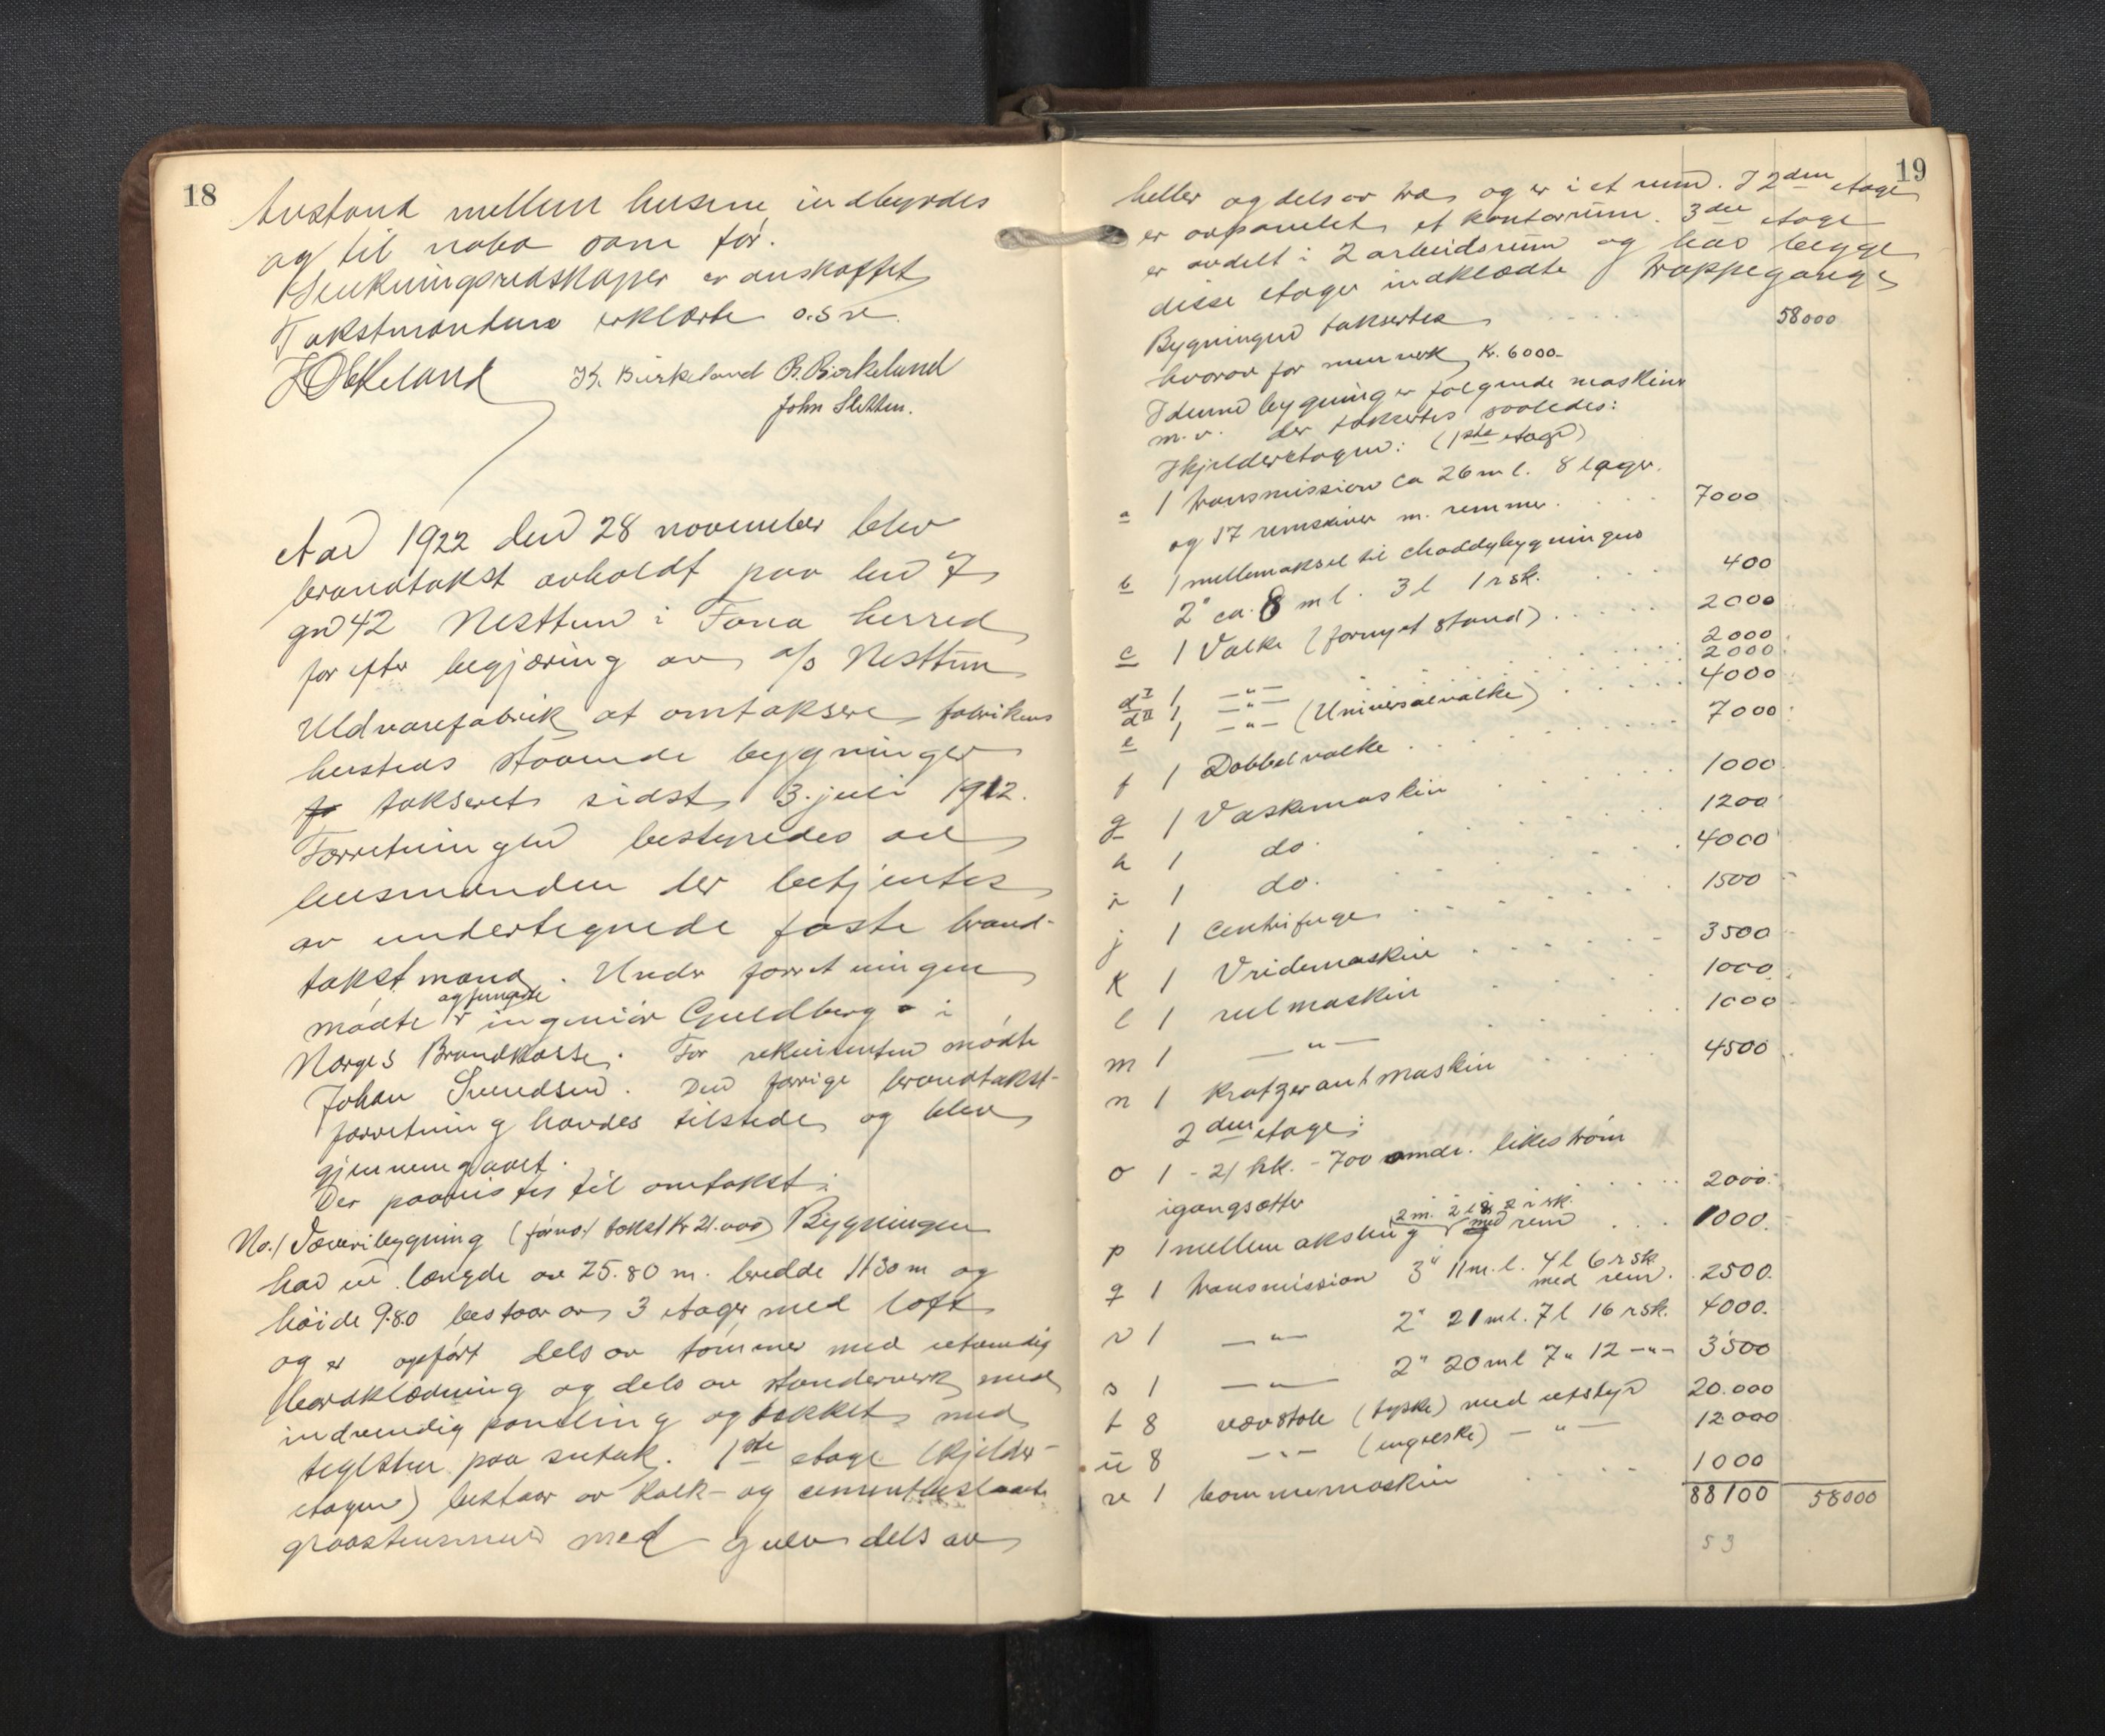 18
Avstand mellem husene indbyrdes
og til nabo som før.
Slukningsredskaper er anskaffet
Takstmændene erklærte o.s.v.
K. Birkeland B. Birkeland
John Sletten.
Aar 1922 den 28 november blev
brandtakst avholdt paa bno 7
gno 42 Nesttun i Fana herred
for efter begjæring av A/S Nesttun
Uldvarefabrik at omtaksere fabrikens
hersteds staaende bygninger
takseret sidst 3. juli 1912.
Forretningen bestyredes av
lensmanden der betjentes
av undertegnede faste brand-
takstmænd. Under forretningen
og fungerte
mødte ingeniør Guldberg i
Norges Brandkasse. For rekvirenten mødte
Johan Svendsen. Den forrige brandtakst-
forretning havdes tilstede og blev
gjennemgaaet.
Der paavistes til omtakst:
No. 1 Væveribygning (før no. 1 takst Kr 21.000) Bygningen
har en længde av 25.80 m. bredde 11.30 m og
høide 9.80 bestaar av 3 etager med loft
og er opført dels av tømmer med utvendig
bordklædning og dels av stenderverk med
indvendig paneling og tækket med
teglsten paa sutak. 1ste etage (kjelder-
etagen) bestaar av kalk- og cementbeslaaet
graastensmur med gulv dels av
19
heller og dels av træ og er i et rum. I 2den etage
er avpanelet et kontorrum. 3die etage
er avdelt i 2 arbeidsrum og har begge
disse etager indklædte trappegange
Bygningen takseres . . . . 58000
hvorav for murverk Kr. 6000-
I denne bygning er følgende maskiner
m.v. der takseres saaledes:
I kjelderetagen: (1ste etage)
a 1 transmission ca 26 m l. 8 lager.
og 17 remskiver m. remmer. . . 7000
b 1 mellemaksel til shoddybygningen
2" ca. 8 m l. 3 l 1 r sk. . . . 400
c 1 Valke (fornyet stand) . . . . . 2000
dI 1 —"— . . . 2000
dII 1 —"— . . . 2000
e 1 —"— (Universalvalke) . . . 4000
f 1 Dobbelvalke . . . . . 7000
g 1 Vaskemaskin . . . . 1000
h 1 do. . . . . 1200
i 1 do. . . . . 4000
j 1 Centrifuge . . . . . 1500
k 1 Vridemaskin . . . . . 3500
l 1 rulmaskin . . . 1000
m 1 —"— . . . 1000
n 1 kratzeraut maskin . . . 4500
2den etage:
o 1 - 21 hk. - 700 omdr. likestrøm
igangsætter . . . . 2000.
2 m. 2 l & 2 r sk.
p 1 mellemaksling med rem . . . 1000.
q 1 transmission 3" 11 m. l. 4 l 6 r sk
med rem. 2500.
r 1 —"— 2" 21 m l. 7 l 16 r sk. 4000.
s 1 —"— 2" 20 m l 7 " 12 —"— 3500
t 8 vævstole (tyske) med utstyr 20.000
u 8 —"— (engelske) —"— 12000
v 1 bommemaskin . . . . 1000
88100 58000
53